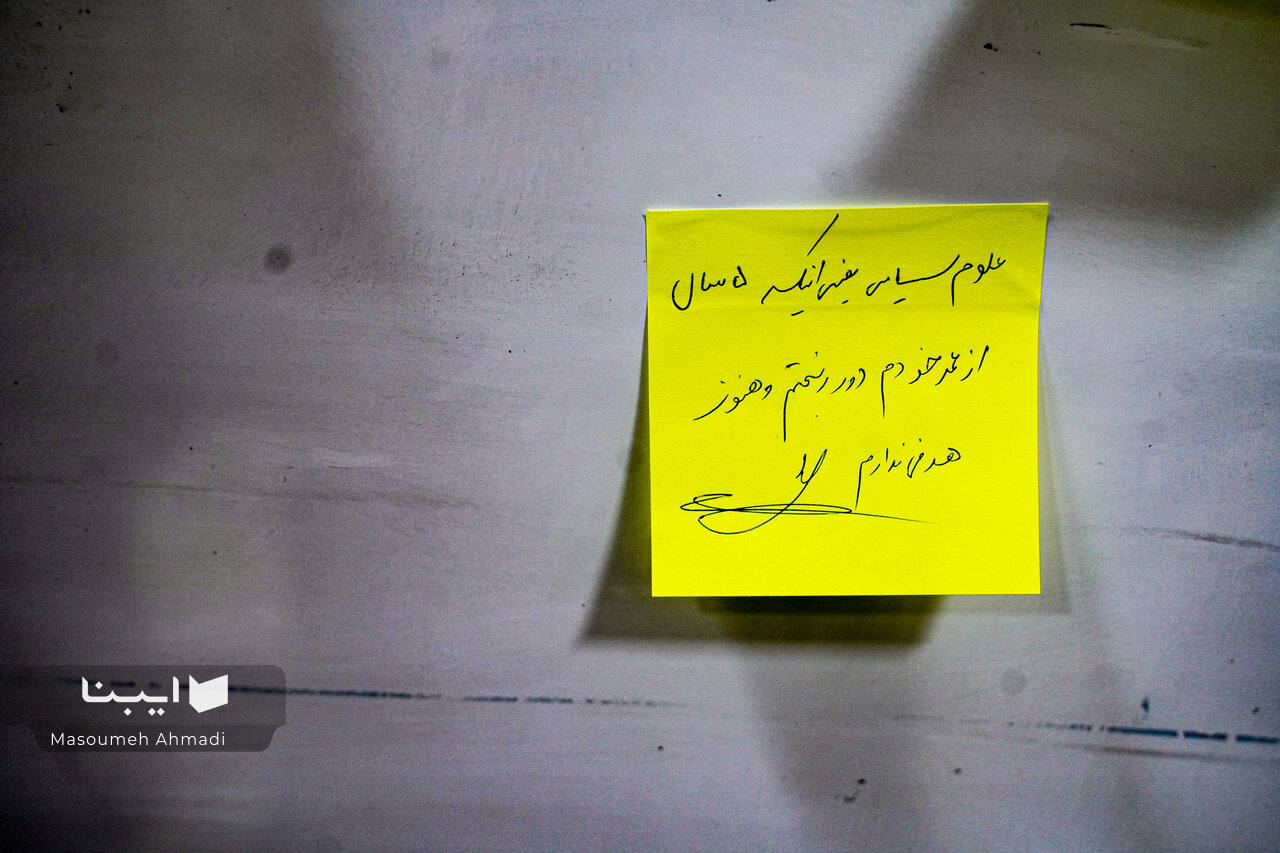 علوم سیاسی یعنی اینکه ۵ سال
از عمر خودم دور ریختم و هنوز
هدفی ندارم
ایبنا
Masoumeh Ahmadi